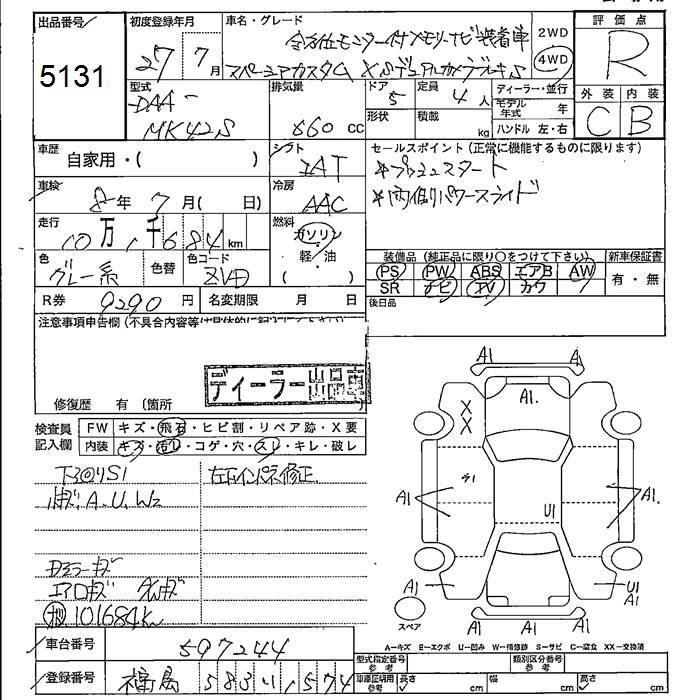 出品番号
5131
初度登録年月
27 7月
車名・グレード
全方位モニター付メモリーナビ装着車
スペーシアカスタム XSデュアルカメラブレーキS
2WD
4WD
評価点
R
外装 内装
C B
型式
DAA-
MK42S
排気量
660 cc
ドア
5
定員
4人
形状
積載
kg
ディーラー・並行
モデル年式 年
ハンドル 左・右
車歴
自家用・( )
シフト
IAT
セールスポイント(正常に機能するものに限ります)
*プッシュスタート
*両側パワースライド
車検
8年 7月( 日)
冷房
AAC
走行
10万1千684km
燃料
ガソリン
軽・油
( )
色
グレー系
色替
色コード
ZVD
装備品(純正品に限り○をつけて下さい)
新車保証書
PS PW ABS エアB AW
SR ナビ TV カワ
有・無
R券 9290円
名変期限 月 日
後日品
注意事項申告欄
ディーラー出品車
修復歴 有 (箇所 )
検査員記入欄
FW キズ・飛石・ヒビ割・リペア跡・X要
内装 キズ・汚レ・コゲ・穴・スレ・キレ・破レ
左右インパネ修正
A.U.W2
Dミラーキズ
エアロキズ
101684km
A1 A1
A1.
X
X
A1
A1.
U1
A1
U1
A1
A1 A1 A1
スペア
A―キズ E―エクボ U―凹み W―補修跡 S―サビ C―腐食 XX―交換済
車台番号
597244
登録番号
福島 583 い 1574
型式指定番号
参考
類別区分番号
参考
車庫証明用
参考
長さ cm
幅 cm
高さ cm